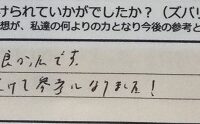 けられていかがでしたか？（ズバリ
想が、私達の何よりの力となり今後の参考と
良かったです。
とても参考になりました！